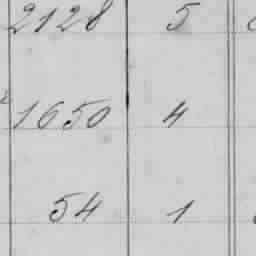 2128 5
1650 4
54 1